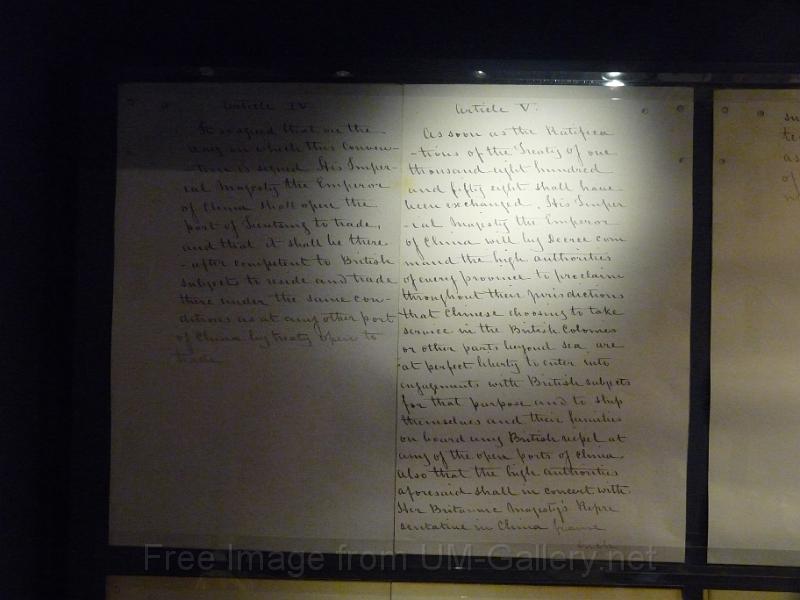 Article IV.
It is agreed that on the
day on which this Conven-
-tion is signed His Imper-
ial Majesty the Emperor
of China shall open the
port of Tientsing to trade,
and that it shall be there
-after competent to British
subjects to reside and trade
there under the same con-
ditions as at any other port
of China by treaty open to
trade
Article V.
As soon as the Ratifica
-tions of the Treaty of one
thousand eight hundred
and fifty eight shall have
been exchanged, His Imper
-ial Majesty the Emperor
of China will by Decree com
mand the high authorities
of every province to proclaim
throughout their jurisdictions
that Chinese choosing to take
service in the British Colonies
or other parts beyond sea are
at perfect liberty to enter into
engagements with British subjects
for that purpose and to ship
themselves and their families
on board any British vessel at
any of the open ports of China
also that the high authorities
aforesaid shall in concert with
Her Britannic Majesty's Repre
sentative in China frame
such
su
te
as
of
Free Image from UM-Gallery.net